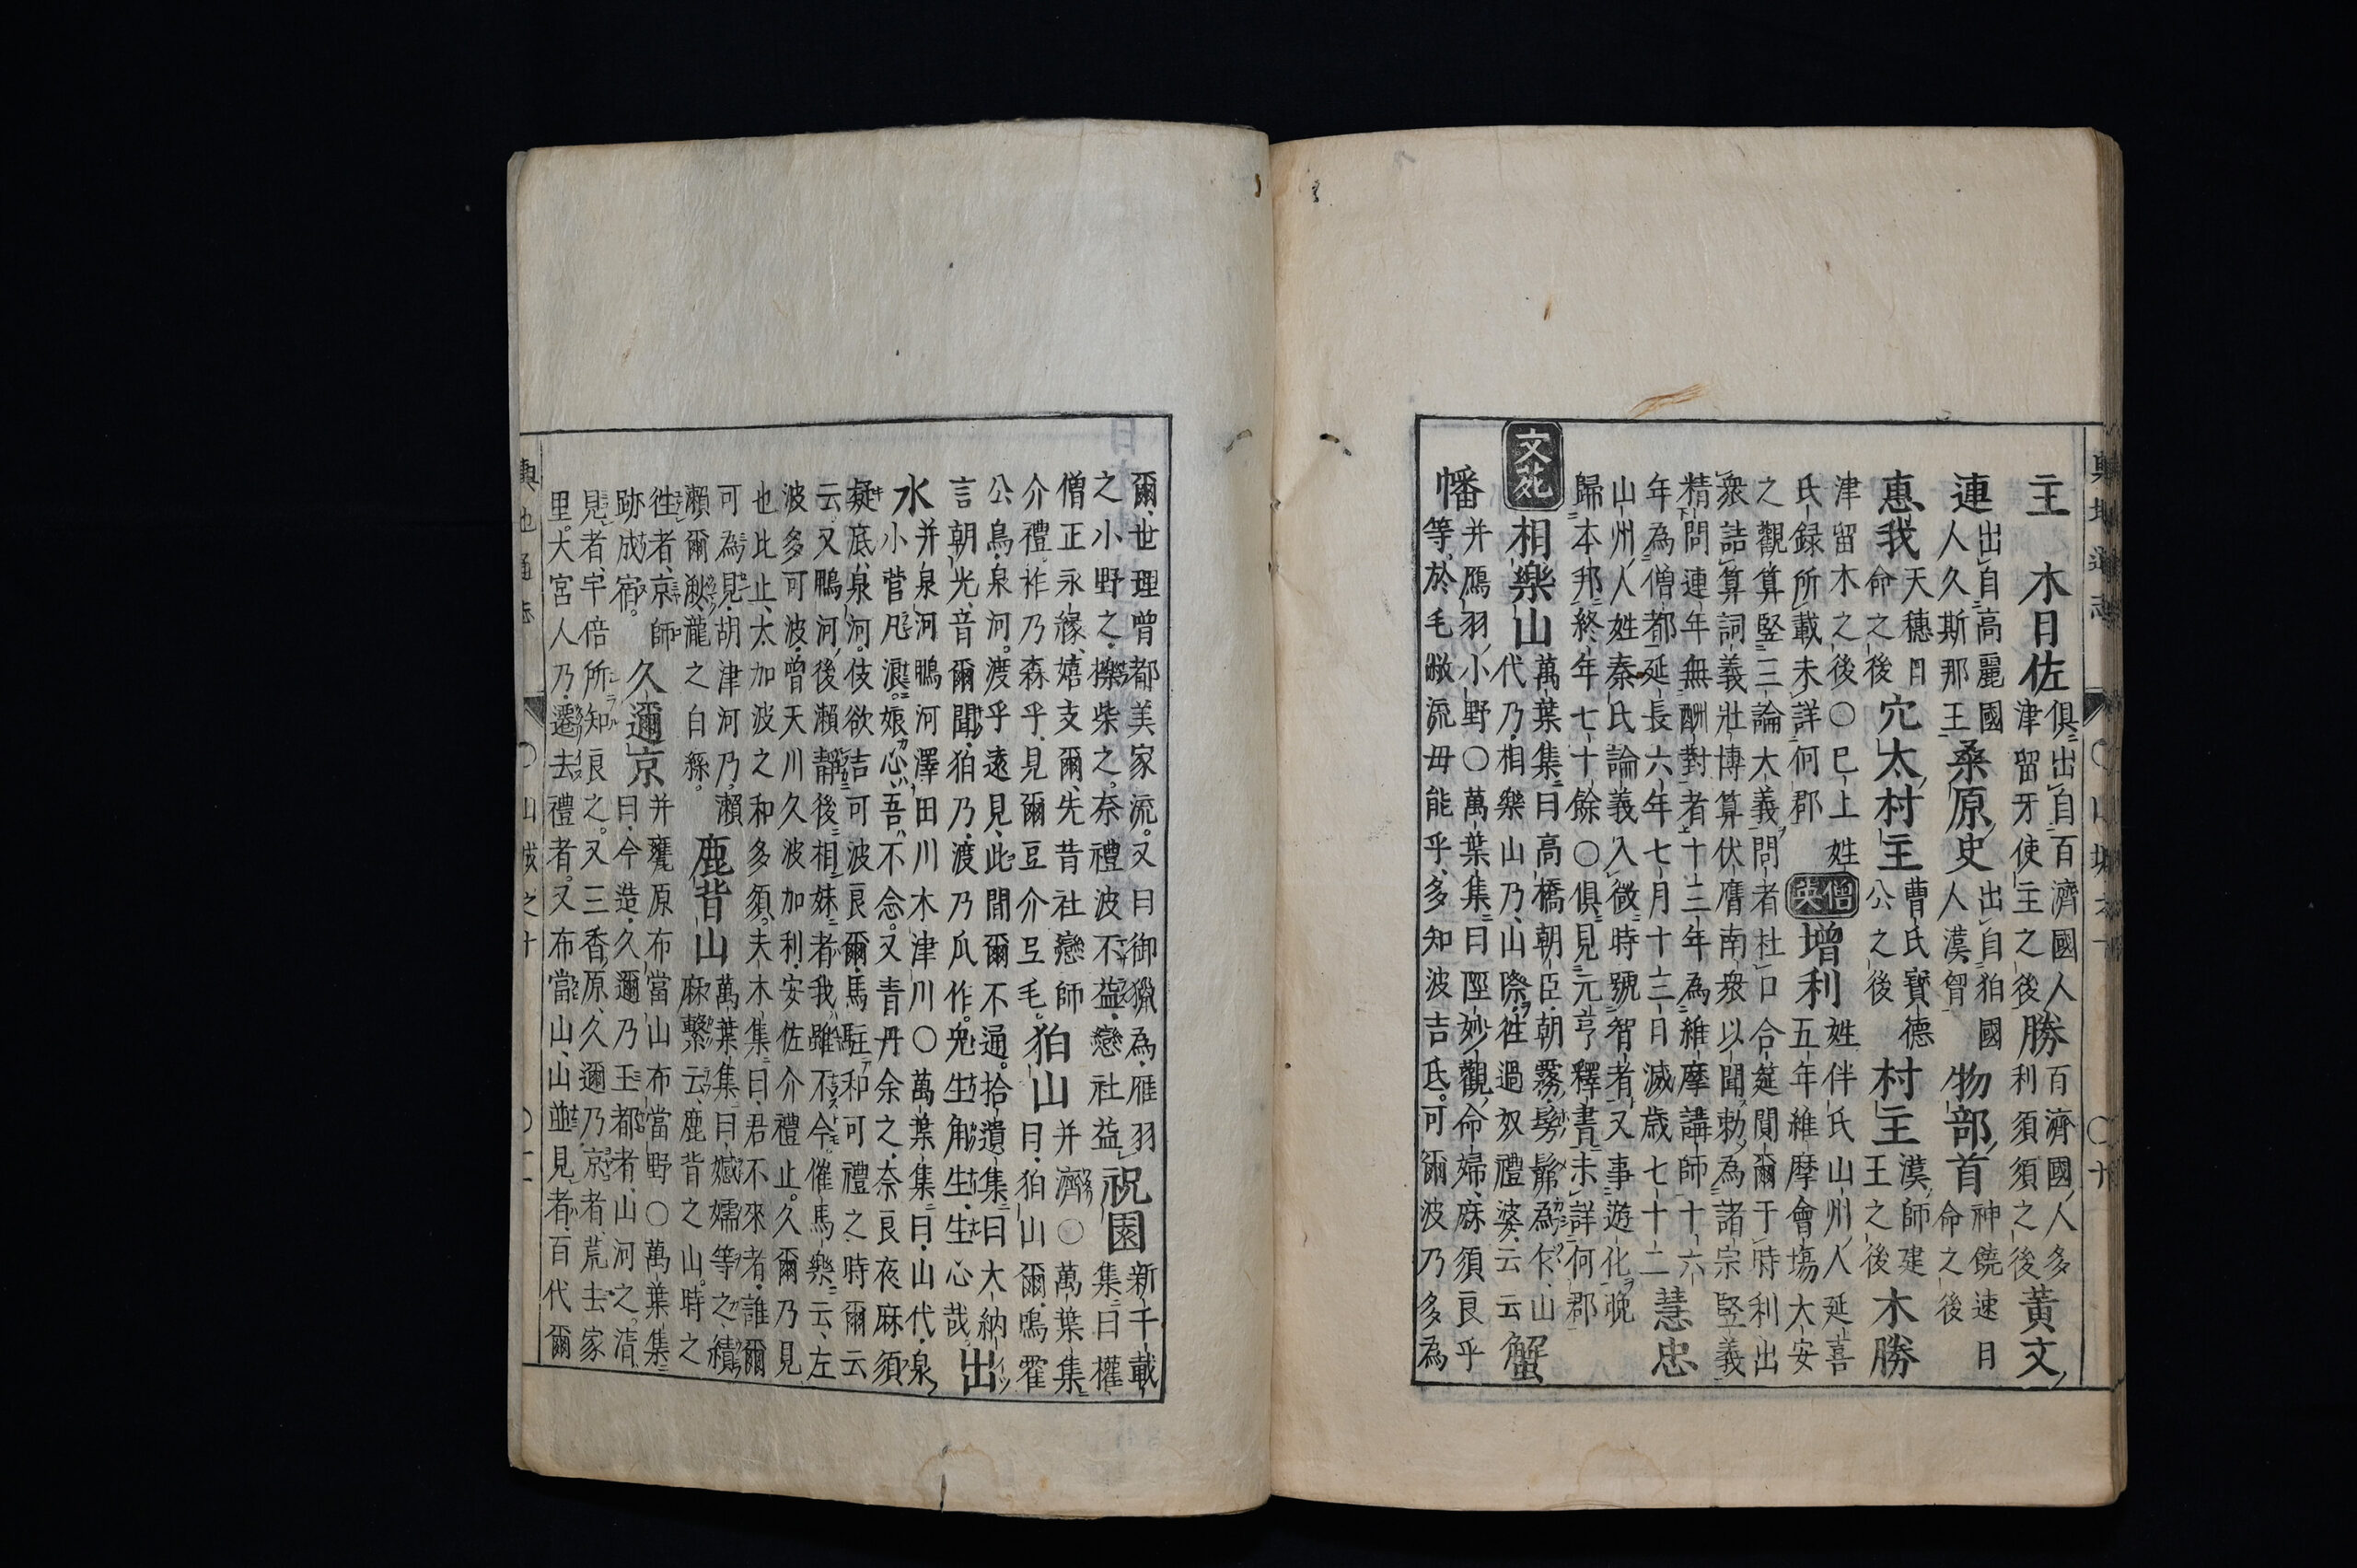 主　木日佐　俱出自百濟國人
津留牙使主之後　勝　百濟國人多
利須須之後　黃文
連　出自高麗國
人久斯那王　桑原史　出自狛國
人漢胷　物部首　神饒速日
命之後
惠我　天穗日
命之後　穴太村主　曹氏寳德
公之後　村主　漢師建
王之後　木勝
津留木之後〇巳上姓
氏録所載未詳何郡　僧英　增利　姓伴氏山州人延喜
五年維摩會塲大安
之觀算竪三論大義問者杜口合筵閴爾于時利出
衆詰算詞義壯博算伏膺南衆以聞勅為諸宗竪義
精問連年無酬對者十三年為維摩講師十六
年為僧都延長六年七月十三日滅歳七十二　慧忠
山州人姓秦氏論義入微時號智者又事遊化晚
歸本邦終年七十餘〇俱見元亨釋書未詳何郡
文苑　相樂山　萬葉集曰高橋朝臣朝霧髣髴為乍山
代乃相樂山乃山際徃過奴禮婆云云　蟹
幡　并鴈羽小野〇萬葉集曰陘妙觀命婦麻須良乎
等於毛敝流毋能乎多知波吉氐可爾波乃多為
爾世理曽都美家流。又曰御獵為雁羽
之小野之櫟柴之奈禮波不益戀社益　祝園　新千載
集曰權
僧正永縁嬉支爾先昔社戀師
介禮祚乃森乎見爾豆介豆毛。　狛山　并濟〇萬葉集
曰狛山爾鳴霍
公鳥泉河。渡乎遠見此間爾不通。拾遺集曰大納
言朝光音爾聞狛乃渡乃瓜作。兎生角生生心哉　出
水　并泉河鴨河澤田川木津川〇萬葉集曰山代泉
小菅凡浪。娘心吾不念。又青丹余之奈良夜麻須
凝底泉河。伎欲吉可波良爾馬駐和可禮之時爾云
云又鴨河後瀨靜後相妹者我雖不今催馬樂云左
波多可波曽天川久波加利安佐介禮止。久爾乃見
也比止太加波之和多須。夫木集曰君不來者誰爾
可為見胡津河乃瀨
瀨爾激瀧之白絲。　鹿背山　萬葉集曰嬢嬬等之績
麻繫云鹿背之山。時之
徃者京師
跡成宿。　久邇京　并甕原布當山布當野〇萬葉集
曰今造久邇乃王都者山河之淸
見者宇倍所知良之。又三香原久邇乃京者荒去家
里。大宮人乃遷去禮者。又布當山山並見者百代爾